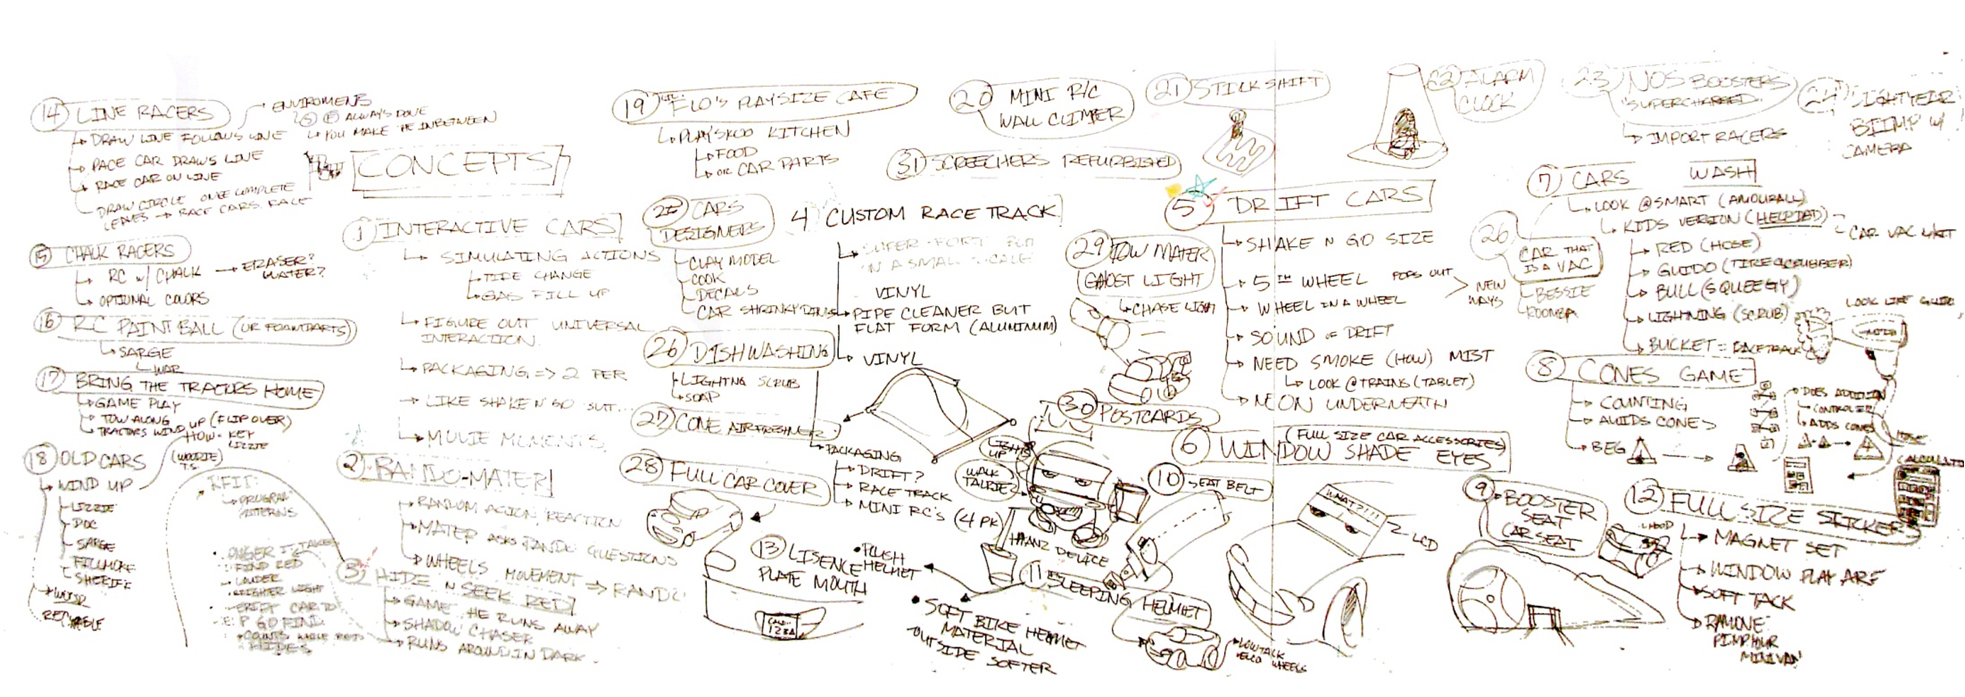 14 LINE RACERS
DRAW LINE FOLLOWS LINE
PACE CAR DRAWS LINE
RACE CAR ON LINE
DRAW CIRCLE ONCE COMPLETE
LEAVES → RACE CARS RACE
ENVIROMENS
ALWAYS DONE
YOU MAKE THE INBETWEEN
CONCEPTS
15 CHALK RACERS
RC W/ CHALK → ERASER?
WATER?
OPTIONAL COLORS
16 RC PAINT BALL (OR FOAM DARTS)
SARGE
WAR
17 BRING THE TRACTORS HOME
GAME PLAY
TOW ALONG
TRACTORS WIND UP (FLIP OVER)
HOW - KEY
LIZZIE
18 OLD CARS
(WOODIE
T'S
WIND UP
LIZZIE
DOC
SARGE
FILLMORE
SHERIFF
WOOD
1 INTERACTIVE CARS
SIMULATING ACTIONS
TIRE CHANGE
GAS FILL UP
FIGURE OUT UNIVERSAL
INTERACTION
PACKAGING => 2 PER
LIKE SHAKE N GO BUT...
MOVIE MOMENTS
2 RANDO-MATER
RANDOM ACTION, REACTION
MATER ASKS RANDO QUESTIONS
WHEELS MOVEMENT → RANDO
3 HIDE N SEEK RED
GAME HE RUNS AWAY
SHADOW CHASER
RUNS AROUND IN DARK
PROGRAM
PATTERNS
FIND RED
LOUDER
BRIGHTER LIGHT
GO FIND
HIDES
19 FLO'S PLAYSIZE CAFE
PLAYSKOO KITCHEN
FOOD
OR CAR PARTS
20 MINI R/C
WALL CLIMER
31 SCREECHERS REFURBISHED
CARS
DESIGNERS
CLAY MODEL
COOK
DECALS
CAR SHRINKY DINKS
26 DISHWASHING
LIGHTNG SCRUB
SOAP
27 CONE AIRFRESHNER
28 FULL CAR COVER
4 CUSTOM RACE TRACK
VINYL
PIPE CLEANER BUT
FLAT FORM (ALUMINUM)
VINYL
PACKAGING
DRIFT?
RACE TRACK
MINI RC'S (4 PK)
13 LISENCE
PLATE MOUTH
• PLUSH
HELMET
• SOFT BIKE HELMET
MATERIAL
OUTSIDE SOFTER
21 STICK SHIFT
22 ALARM
CLOCK
5 DRIFT CARS
SHAKE N GO SIZE
5TH WHEEL POPS OUT
WHEEL IN A WHEEL
NEW
WAYS
SOUND OF DRIFT
NEED SMOKE (HOW) MIST
LOOK @ TRAINS (TABLET)
NEON UNDERNEATH
29 TOW MATER
GHOST LIGHT
CHASE LIGHT
30 POSTCARDS
LIGHTS
UP
WALK
TALKIE?
HANZ DEVICE
11 SLEEPING HELMET
6 WINDOW SHADE EYES
(FULL SIZE CAR ACCESSORIES)
10 SEAT BELT
WHAT?!!!
LCD
LOW TALK
9 BOOSTER
SEAT
CAR SEAT
23 NOS BOOSTERS
SUPERCHARGED
IMPORT RACERS
24 LIGHTYEAR
BLIMP W/
CAMERA
7 CARS WASH
LOOK @ SMART (AMOURALL)
KIDS VERSION (HELPIED)
CAR VAC UNIT
RED (HOSE)
GUIDO (TIRE SCRUBBER)
BULL (SQUEEGY)
LIGHTNING (SCRUB)
BUCKET = RACETRACK
LOOK LIKE GUIDO
26 CAR THAT
IS A VAC
BESSIE
ROOMBA
8 CONES GAME
COUNTING
AVIDS CONES
BEG
DOES ADDITION
CONTROLLER
ADDS CONES
HOSE
CALCULATOR
12 FULL SIZE STICKER
HOOD
MAGNET SET
WINDOW PLAY ARE
SOFT TACK
RAMONE
PIMP YOUR
MINIVAN